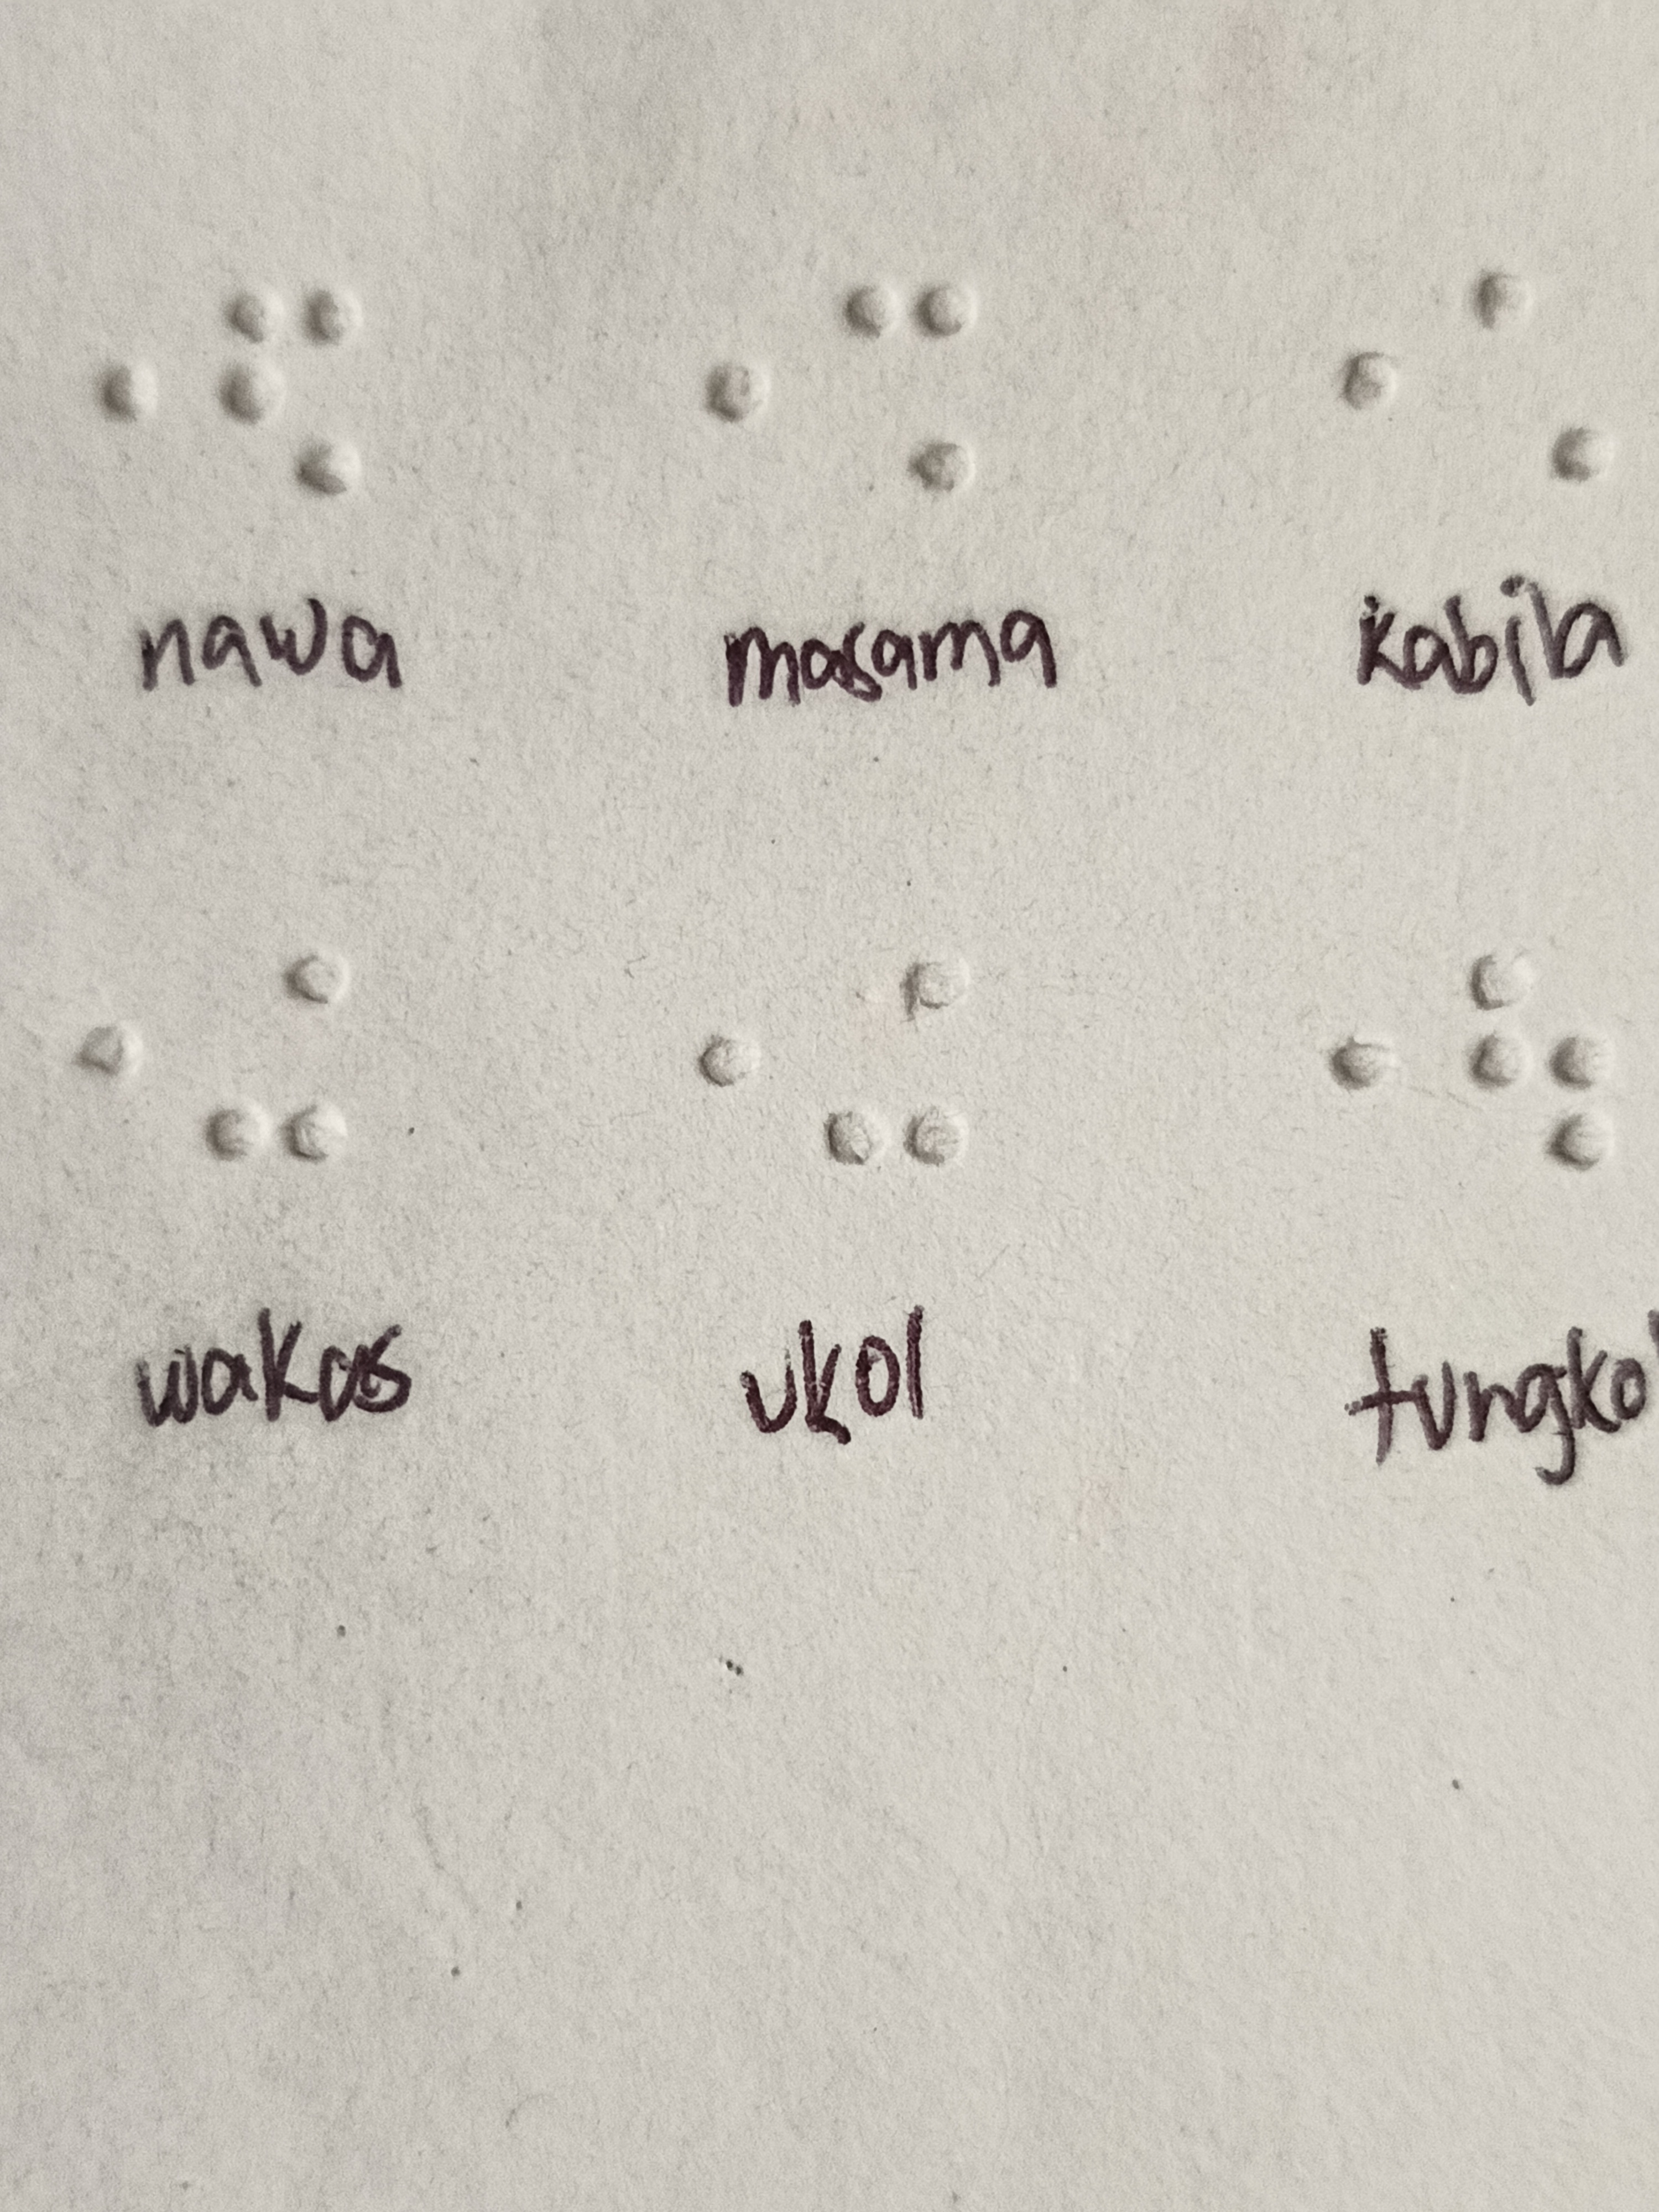 ⠐⠫ ⠐⠩ ⠐⠡
nawa masama kabila
⠐⠬ ⠐⠬ ⠐⠳
wakas ukol tungkol